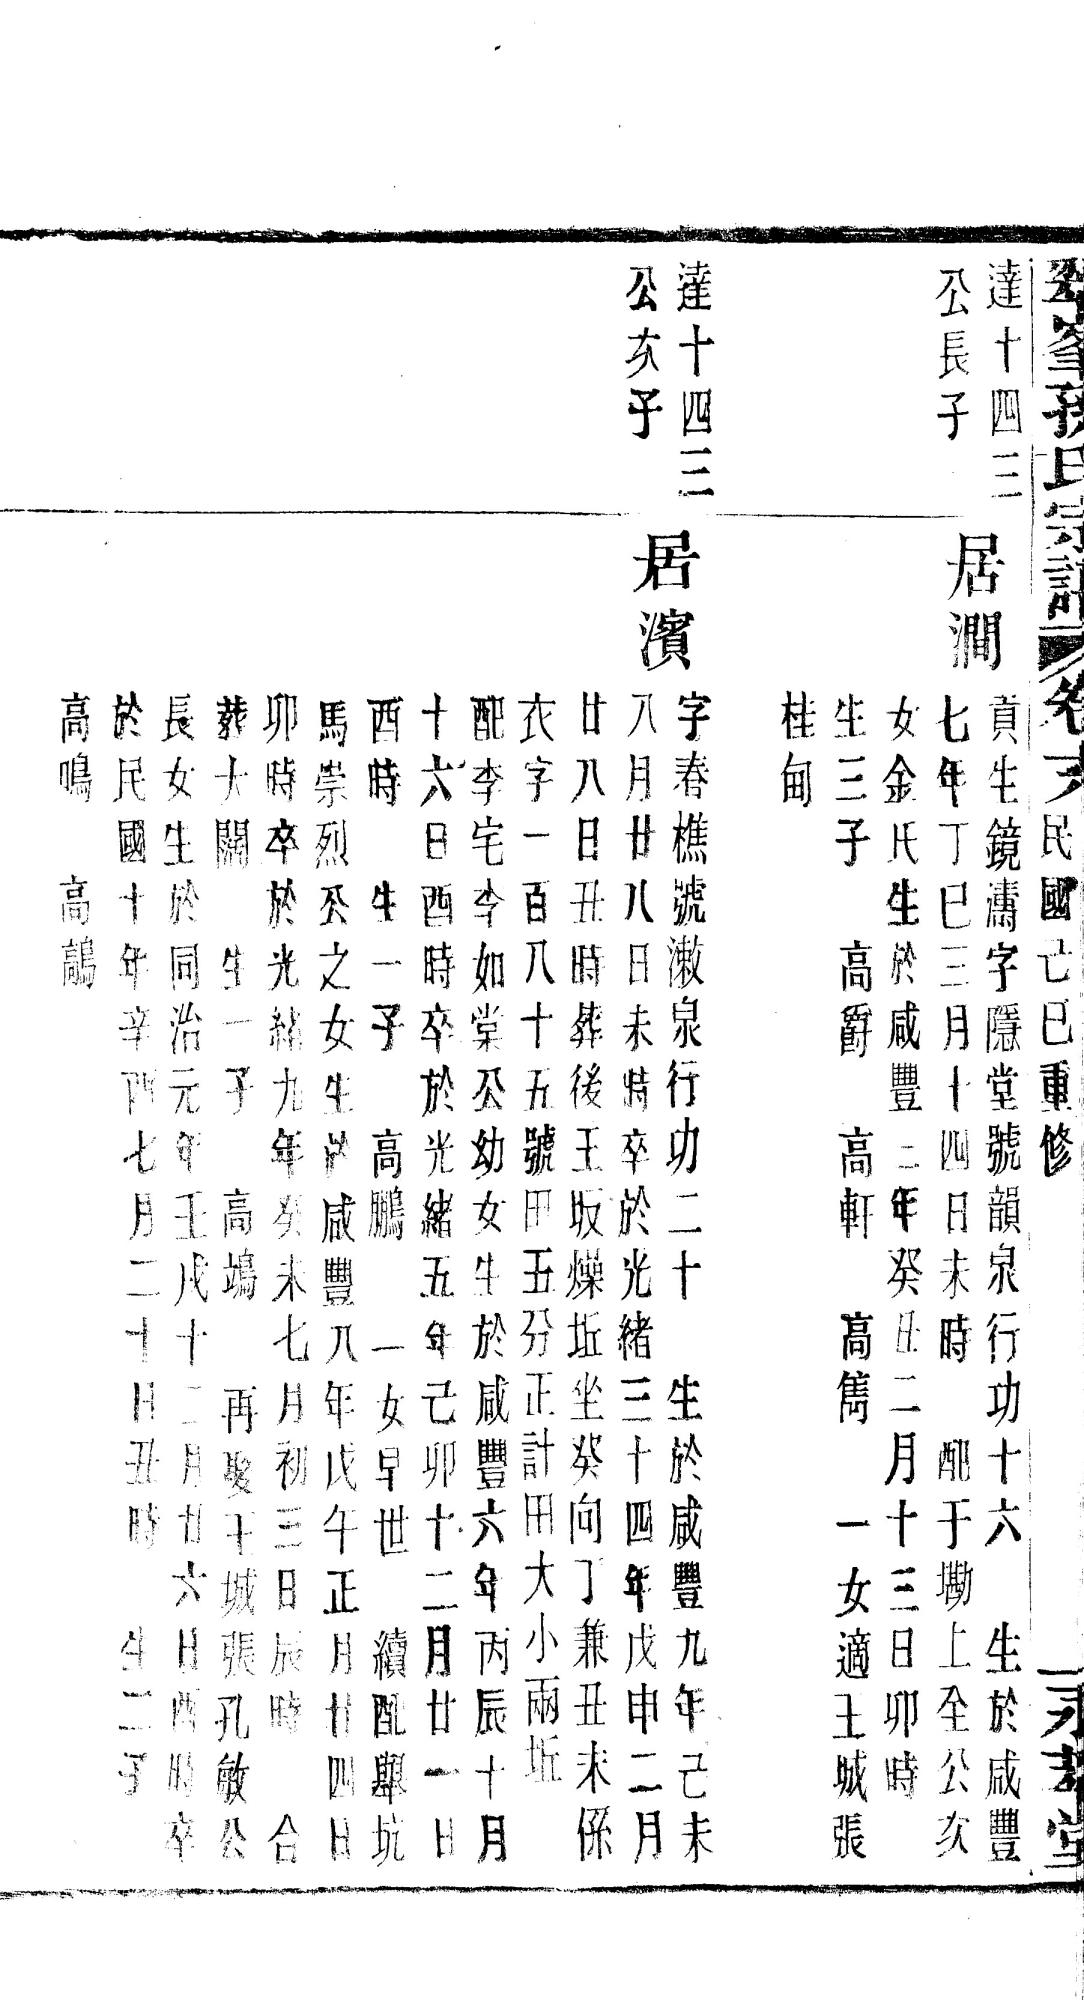 峯孫氏宗譜 卷六 民國己巳重修 一 永 堂
達十四三
公長子
居澗
貢生鏡濤字隱堂號韻泉行功十六 生於咸豐
七年丁巳三月十四日未時 配于墈上全公次
女金氏生於咸豐三年癸丑二月十三日卯時
生三子 高爵 高軒 高雋 一女適王城張
桂甸
達十四三
公次子
居濱
字春樵號漱泉行功二十 生於咸豐九年己未
八月廿八日未時卒於光緒三十四年戊申二月
廿八日丑時葬後王坂燥坵坐癸向丁兼丑未係
衣字一百八十五號田五分正計田大小兩坵
配李宅李如棠公幼女生於咸豐六年丙辰十月
十六日酉時卒於光緒五年己卯十二月廿一日
酉時 生一子 高鵬 一女早世 續配舉坑
馬崇烈公之女生於咸豐八年戊午正月廿四日
卯時卒於光緒九年癸未七月初三日辰時 合
葬大闊 生一子 高鴻 再娶王城張孔敏公
長女生於同治元年壬戌十二月廿六日酉時卒
於民國十年辛酉七月二十日丑時 生二子
高鳴 高鶄